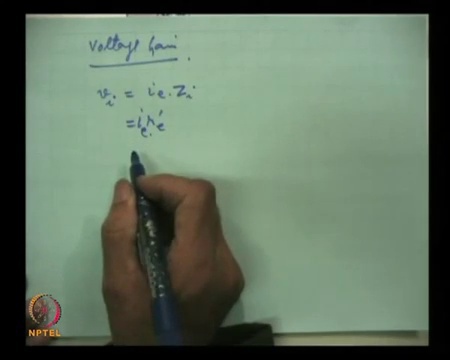 Voltage Gain.
v_i = i_e . Z_i
= i_e . r'_e
NPTEL